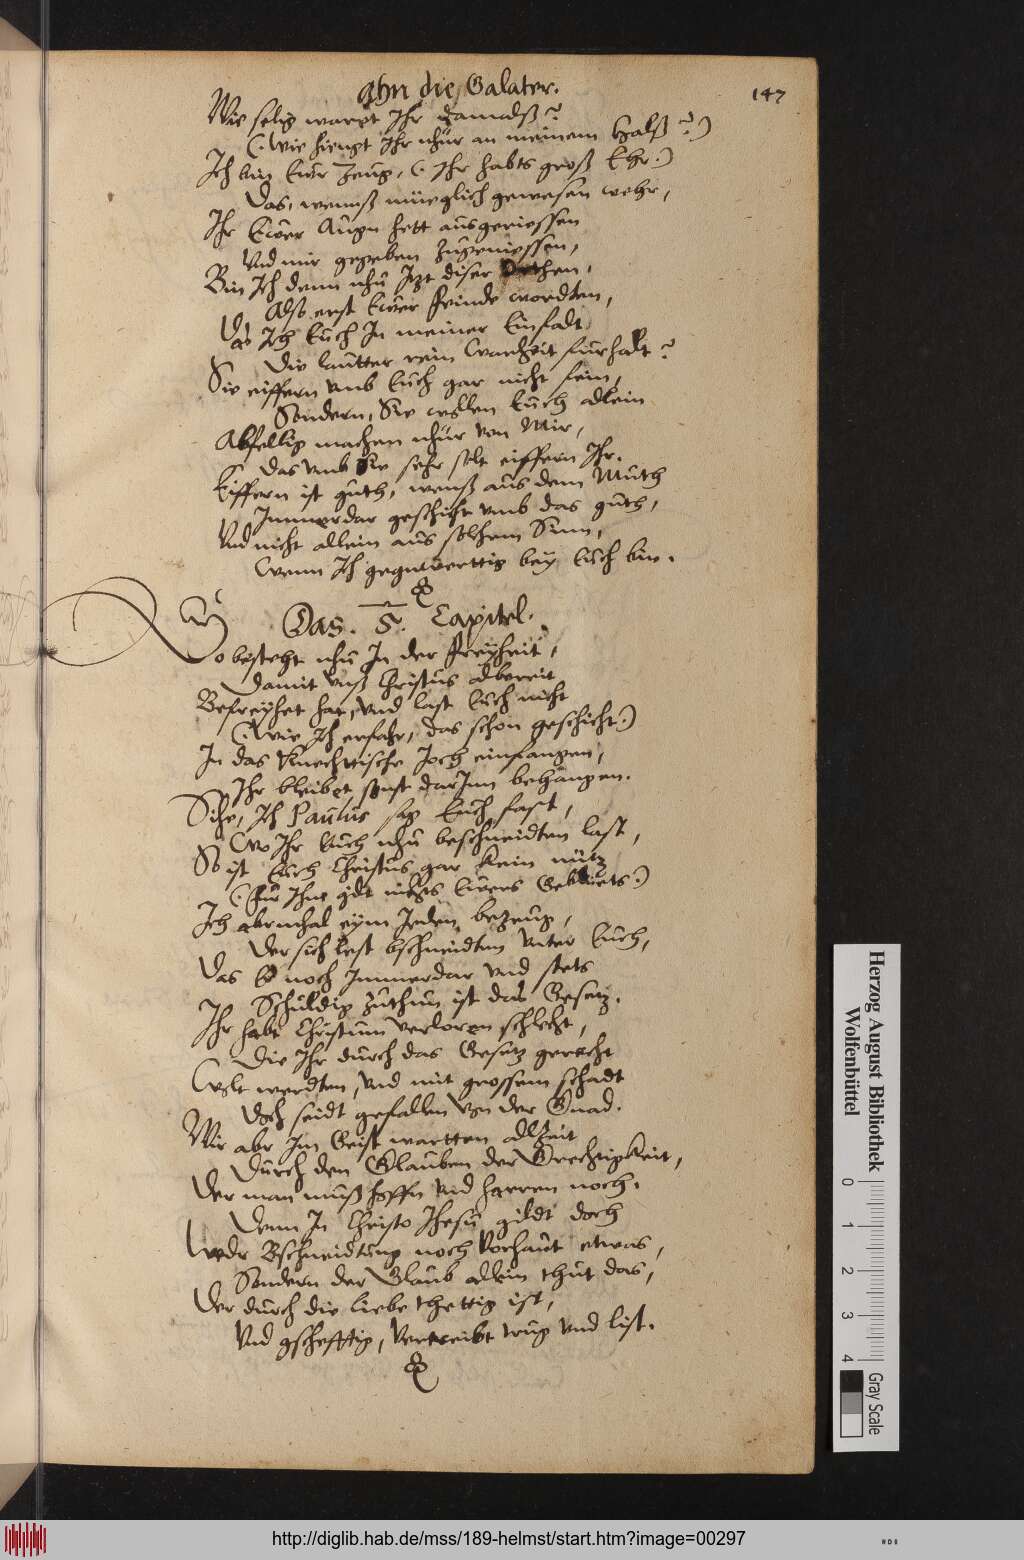 Ahn die Galater.
147
Wie selig waret Ihr damalß?
(: Wie hiengt Ihr nhur an meinem Halß? :)
Ich bin Ewr Zeug, (: Ihr habts groß Ehr :)
Das, wennß müeglich gewesen wehr,
Ihr Ewer Augn hett ausgeriessen
Vnd mir gegeben zugeniessen,
Bin Ich denn nhu Itzt diser
Also erst Ewer Feinde wordten,
Das Ich Euch In meiner Einfalt
Die lautter rein Warheit fürhalt?
Sie eiffern vmb Euch gar nicht fein,
Sondern, Sie wellen Euch allein
Abfellig machen nhur von Mir,
Das vmb Sie sehr solt eiffern Ihr.
Eiffern ist guth, wenß aus dem Muth
Immerdar geschicht vmb das guth,
Vnd nicht allein aus solchem Sinn,
Wenn Ich gegenwerttig bey Euch bin.
Das. 5. Capitel.
So besteht nhu In der Freyheit,
Damit vnß Christus albereit
Befreyhet hat, vnd last Euch nicht
(: Wie Ich erfahr, das schon geschicht :)
In das Knechtische Joch einfangen,
Ihr bleibet sonst darInn behangen.
Sihe, Ich Paulus sag Euch fast,
Wo Ihr Euch nhu beschneidten last,
So ist Euch Christus gar kein nütz
(: Für Ihme gilt nichts Ewers :)
Ich abrmhal eym Jeden bezeug,
Der sich lest bschneidten vnter Euch,
Das Er noch Immerdar vnd stets
Schuldig zuthun ist das Gesetz.
Ihr habt Christum verloren schlecht,
Die Ihr durch das Gesetz gerecht
Welt werdten, vnd mit grossem schadt
Ihr seidt gefallen von der Gnad.
Wir abr Im Geist wartten alzeit
Durch den Glauben der Grechtigkeit,
Der man muß hoffn vnd harren noch.
Denn In Christo Jhesu gildt doch
Wedr Bschneidtung noch Vorhaut etwas,
Sondern der Glaub allein thut das,
Der durch die liebe thettig ist,
Vnd gschefftig, vertreibt trug vnd list.
Herzog August Bibliothek
Wolfenbüttel
0 1 2 3 4
Gray Scale
http://diglib.hab.de/mss/189-helmst/start.htm?image=00297